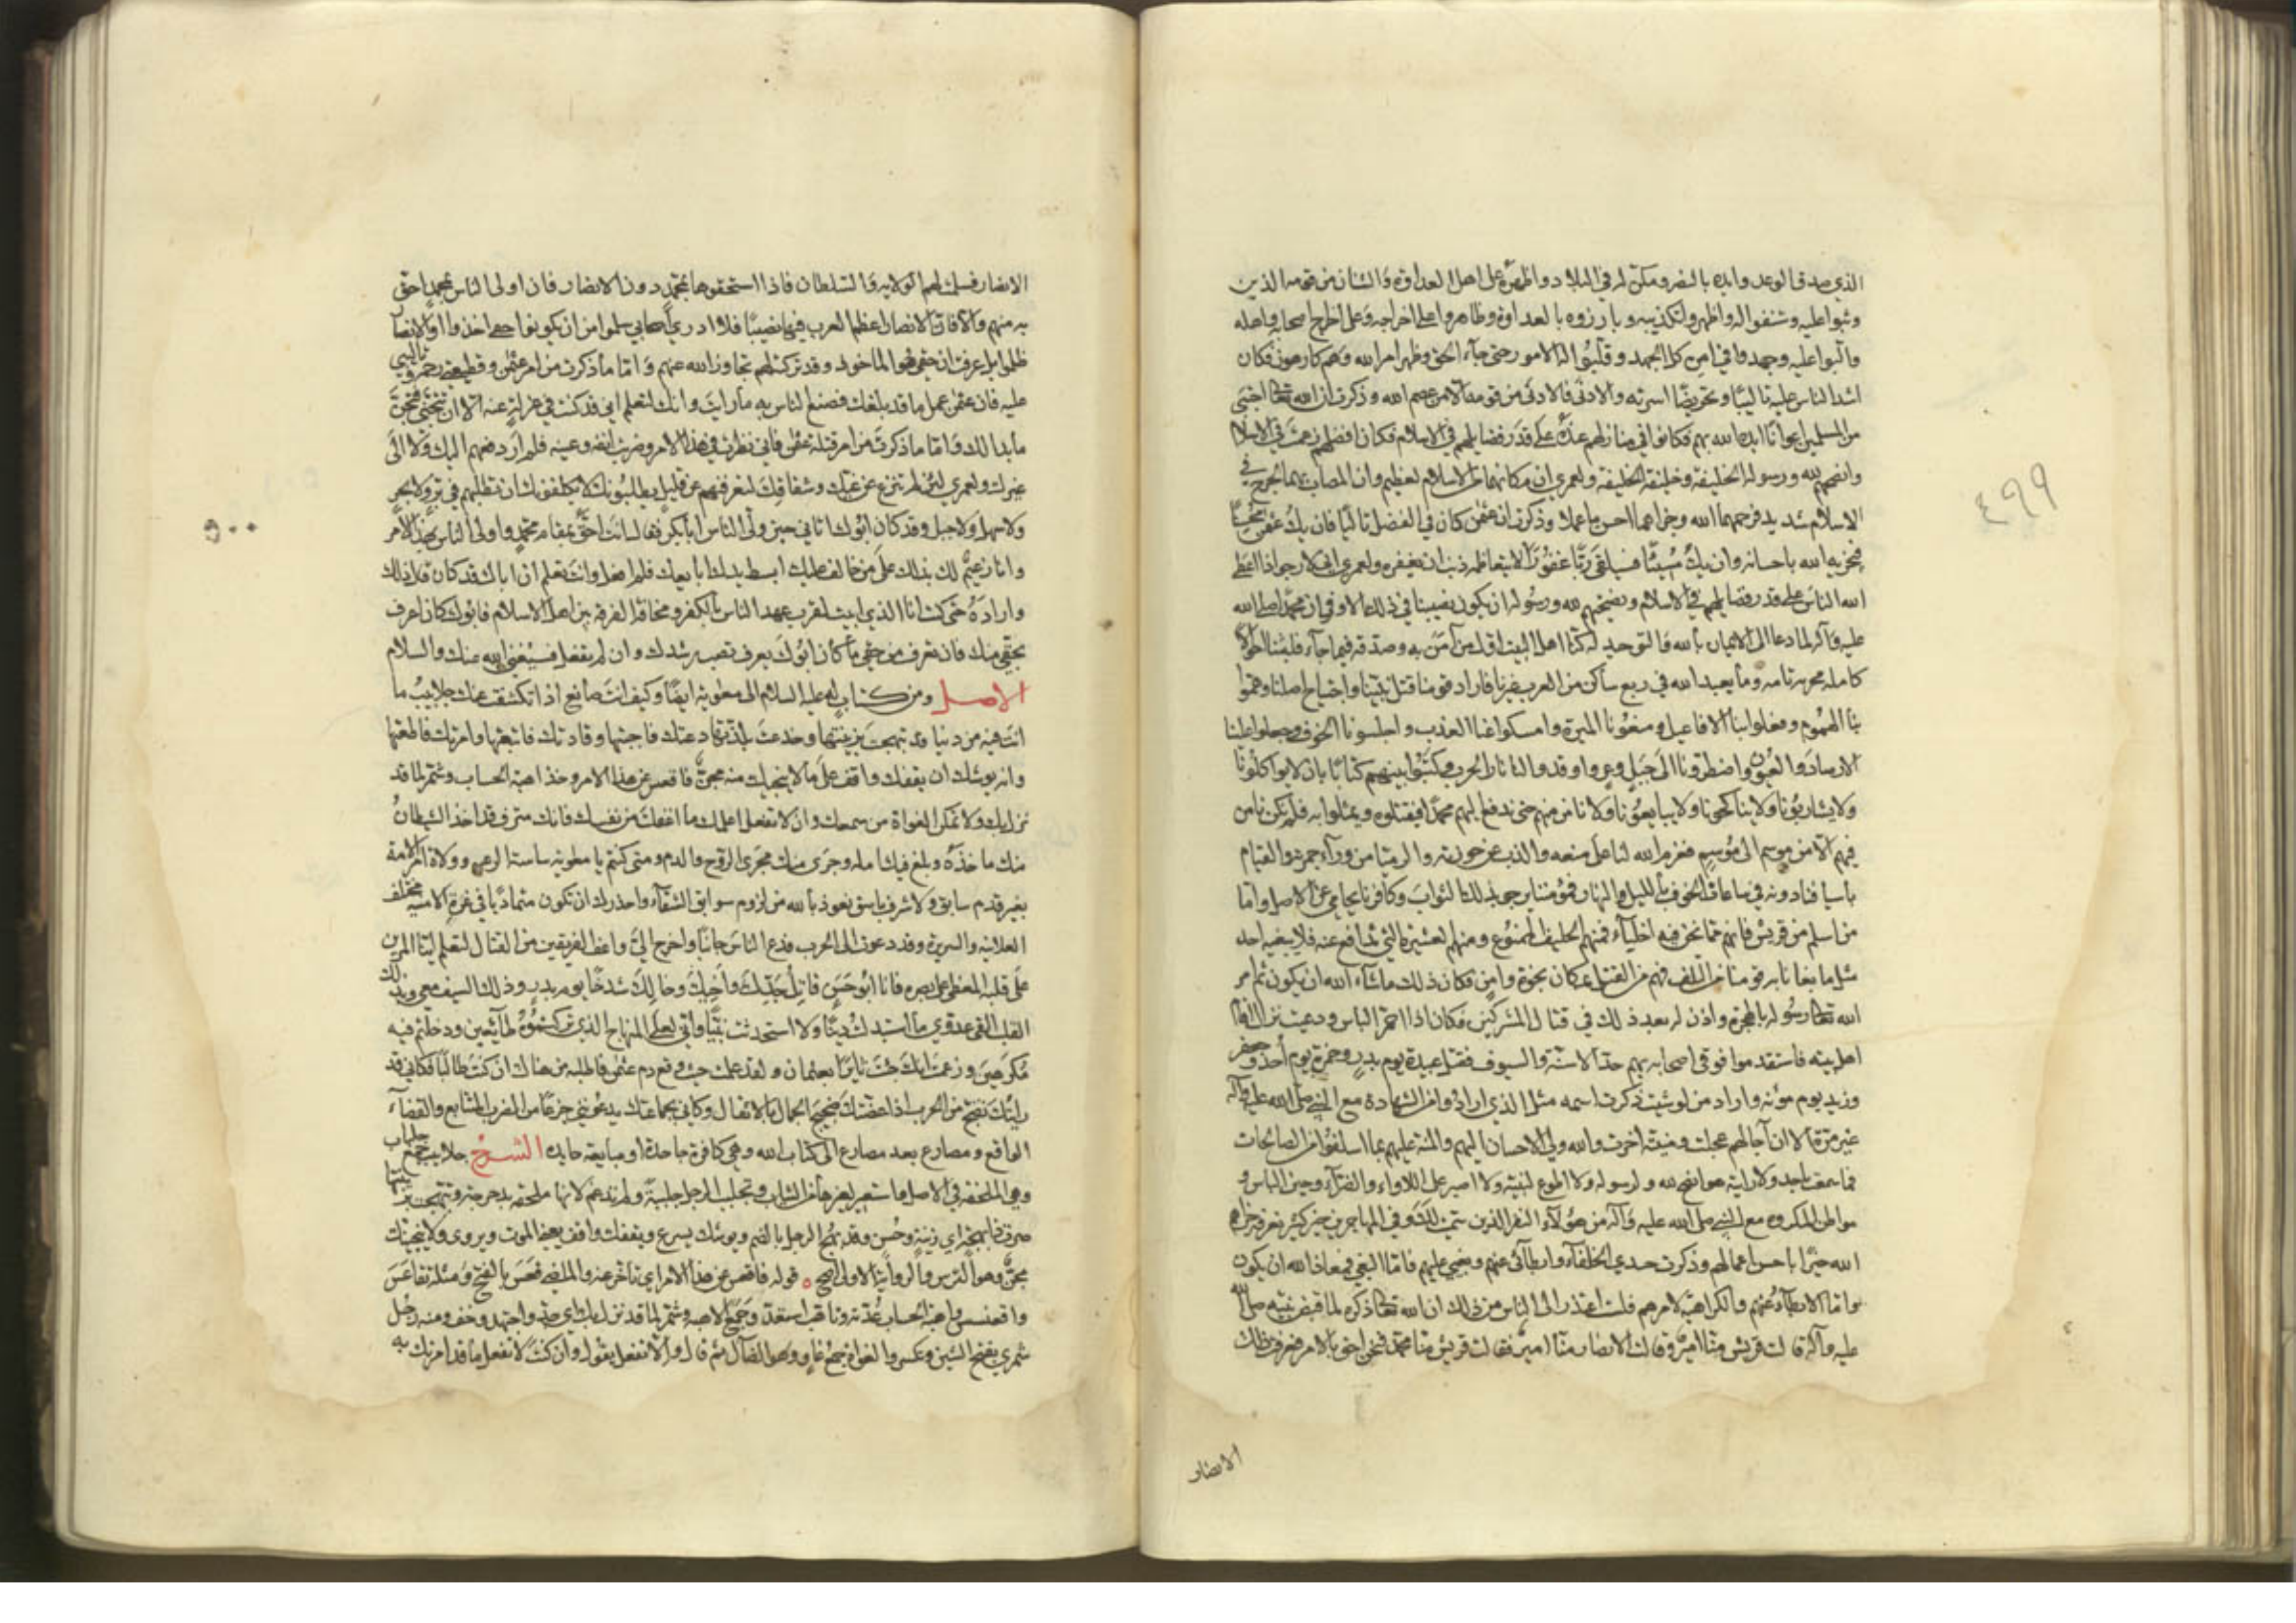 الذي صدقه الوعد وايده بالنصر ومكن له في البلاد واظهره على اهل العداوة والشنآن من قومه الذين
وثبوا عليه وشنفوا له واظهروا تكذيبه وبارزوه بالعداوة وظاهروا على اخراجه وعلى اخراج اصحابه واهله
والبوا عليه وجهدوا في امره كل الجهد وقلبوا له الامور حتى جآء الحق وظهر امر الله وهم كارهون فكان
اشد الناس عليه تاليبا وتحريضا اسرته والادنى فالادنى من قومه الا من عصم الله وذكرت ان الله تعالى اجتبى
من المسلمين اعوانا ايده الله بهم فكانوا في منازلهم عنده على قدر فضايلهم في الاسلام فكان افضلهم زعمت في الاسلام
وانصحهم لله ورسوله الخليفة وخليفة الخليفة ولعمري ان مكانهما في الاسلام لعظيم وان المصاب بهما لجرح في
الاسلام شديد فرحمهما الله وجزاهما احسن ما عملا وذكرت ان عثمن كان في الفضل ثالثا فان يك عثمن محسنا
فيجزيه الله باحسانه وان يك مسيئا فسيلقى ربا غفورا لا يتعاظمه ذنب ان يغفره ولعمري اني لارجو اذا اعطى
الله الناس على قدر فضايلهم في الاسلام ونصيحتهم لله ورسوله ان يكون نصيبنا في ذلك الاوفى ان محمدا صلى الله
عليه وآله لما دعا الى الايمان بالله والتوحيد له كنا اهل البيت اول من آمن به وصدقه فيما جآء فلبثنا احوالا
كاملة مجرمة تامه وما يعبد الله في ربع ساكن من العرب غيرنا فاراد قومنا قتل نبينا واجتياح اصلنا وهموا
بنا الهموم وفعلوا بنا الافاعيل ومنعونا الميرة وامسكوا عنا العذب واحلسونا الخوف وجعلوا علينا
الارصاد والعيون واضطرونا الى جبل وعر واوقدوا لنا نار الحرب وكتبوا بينهم كتابا بان لا يواكلونا
ولا يشاربونا ولا يناكحونا ولا يبايعونا ولا نامن منهم حتى ندفع اليهم محمدا فيقتلوه ويمثلوا به فلم نكن نامن
فيهم الا من موسم الى موسم فعزم الله لنا على منعه والذب عن حوزته والرمي من ورآء حرمته والقيام
باسيافنا دونه في ساعات الخوف بالليل والنهار فمؤمننا يرجو بذلك الثواب وكافرنا يحامي عن الاصل واما
من اسلم من قريش فانهم مما نحن فيه اخليآء فمنهم الحليف الممنوع ومنهم ذو العشيرة التي تدافع عنه فلا يبغيه احد
مثل ما بغانا به قومنا من التلف فهم من القتل بمكان نجوة وامن فكان ذلك ما شآء الله ان يكون ثم امر
الله تعالى رسوله بالهجرة واذن له بعد ذلك في قتال المشركين فكان اذا احمر الباس ودعيت نزال اقام
اهل بيته فاستقدموا فوقى اصحابه بهم حد الاسنة والسيوف فقتل عبيدة يوم بدر وحمزة يوم أحد وجعفر
وزيد يوم مؤته واراد من لو شيت ذكرت اسمه مثل الذي ارادوا من الشهادة مع النبي صلى الله عليه وآله
غير مرة الا ان آجالهم عجلت ومنيته اخرت والله ولي الاحسان اليهم والمنة عليهم بما اسلفوا من الصالحات
فما سمعت باحد ولا رايته هو انصح لله ولرسوله ولا اطوع لنبيه ولا اصبر على اللاواء والضرآء وحين الباس و
مواطن المكروه مع النبي صلى الله عليه وآله من هؤلآء النفر الذين سميت لك وفي المهاجرين خير كثير نعرفه جزاهم
الله خيرا باحسن اعمالهم وذكرت حسدي الخلفآء وابطائي عنهم وبغيي عليهم فاما البغي فمعاذ الله ان يكون
واما الابطآء عنهم والكراهية لامرهم فلست اعتذر الى الناس من ذلك ان الله تعالى ذكره لما قبض نبيه صلى الله
عليه وآله قالت قريش منا امير وقالت الانصار منا امير فقالت قريش منا محمد فنحن احق بالامر فعرفت ذلك
الانصار
٤٩٩
الانصار فسلمت لهم الولاية والسلطان فاذا استحقوها بمحمد دون الانصار فان اولى الناس بمحمد احق
به منهم والا فان الانصار اعظم العرب فيها نصيبا فلا ادري اصحابي سلموا من ان يكونوا حقي اخذوا او الانصار
ظلموا بل عرفت ان حقي هو الماخوذ وقد تركته لهم تجاوز الله عنهم واما ما ذكرت من امر عثمن وقطيعتي رحمه وتاليبي
عليه فان عثمن عمل ما قد بلغك فصنع الناس به ما رايت وانك لتعلم اني قد كنت في عزلة عنه الا ان تتجنى فتجن
ما بدا لك واما ما ذكرت من امر قتلة عثمن فاني نظرت في هذا الامر وضربت انفه وعينه فلم ار دفعهم اليك ولا الى
غيرك ولعمري لئن لم تنزع عن غيك وشقاقك لتعرفنهم عن قليل يطلبونك لا يكلفونك ان تطلبهم في بر ولا بحر
ولا سهل ولا جبل وقد كان ابوك اتاني حين ولى الناس ابا بكر فقال انت احق بمقام محمد واولى الناس بهذا الامر
وانا زعيم لك بذلك على من خالف عليك ابسط يدك ابايعك فلم افعل وانت تعلم ان اباك قد كان قال ذلك
واراده حتى كنت انا الذي ابيت لقرب عهد الناس بالكفر ومخافة الفرقة بين اهل الاسلام فابوك كان اعرف
بحقي منك فان تعرف من حقي ما كان ابوك يعرف تصب رشدك وان لم تفعل فسيغني الله عنك والسلام
الاصل ومن كتاب له عليه السلام الى معوية ايضا وكيف انت صانع اذا تكشفت عنك جلابيب ما
انت فيه من دنيا قد تبهجت بزينتها وخدعت بلذتها دعتك فاجبتها وقادتك فاتبعتها وامرتك فاطعتها
وانه يوشك ان يقفك واقف على ما لا ينجيك منه مجن فاقعس عن هذا الامر وخذ اهبة الحساب وشمر لما قد
نزل بك ولا تمكن الغواة من سمعك وان لا تفعل اعلمك ما اغفلت من نفسك فانك مترف قد اخذ الشيطان
منك ماخذه وبلغ فيك امله وجرى منك مجرى الروح والدم ومتى كنتم يا معوية ساسة الرعيه وولاة امر الامة
بغير قدم سابق ولا شرف باسق نعوذ بالله من لزوم سوابق الشقآء واحذرك ان تكون متماديا في غرة الامنية مختلف
العلانيه والسريرة وقد دعوت الى الحرب فدع الناس جانبا واخرج الي واعف الفريقين من القتال لتعلم اينا المرين
على قلبه المغطى على بصره فانا ابو حسن قاتل جدك واخيك وخالك شدخا يوم بدر وذلك السيف معي وبذلك
القلب القى عدوي ما استبدلت دينا ولا استحدثت نبيا واني لعلى المنهاج الذي تركتموه طائعين ودخلتم فيه
مكرهين وزعمت انك جئت ثايرا بعثمان ولقد علمت حيث وقع دم عثمن فاطلبه من هناك ان كنت طالبا فكاني قد
رايتك تضج من الحرب اذا عضتك ضجيج الجمال بالاثقال وكاني بجماعتك يدعونني جزعا من الضرب المتتابع والقضآء
الواقع ومصارع بعد مصارع الى كتاب الله وهي كافرة جاحدة او مبايعة حايدة الشرح جلابيب جمع جلباب
وهي الملحفة في الاصل فاستعير لغيرها من الثياب وتجلبب الرجل جلببة ولم تدغم لانها ملحقه بدحرجة وتبهجت بزينتها
صرت ذا بهجة اي زينة وحسن وقد بهج الرجل بالضم ويوشك يسرع ويقفك واقف يعني الموت ويروى ولا ينجيك
مجن وهو الترس والرواية الاولى اصح ه قوله فاقعس عن هذا الامر اي تاخر عنه والماضي قعس بالفتح ومثله تقاعس
واقعنسس واهبة الحساب عدته وتاهب استعد وجمع الاهبة وشمر لما قد نزل بك اي جد واجتهد وخف ومنه رجل
شمري بفتح الشين وتكسر والغواة جمع غاو وهو الضال ثم قال وان لا تفعل يقول وان كنت لا تفعل ما قد امرتك به
٥٠٠